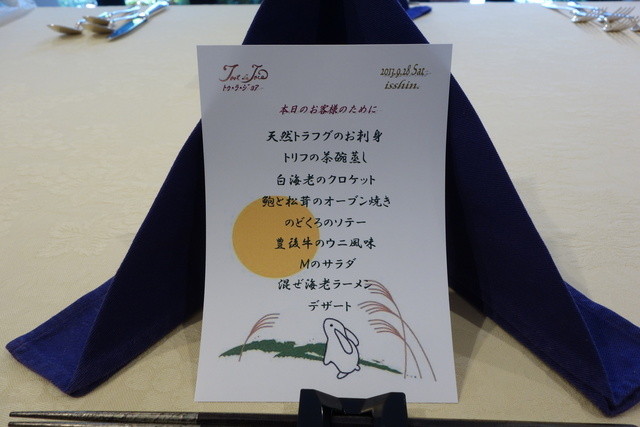 Tour de Joie
トゥ・ラ・ジョア
2013.9.28 Sat
isshin.
本日のお客様のために
天然トラフグのお刺身
トリフの茶碗蒸し
白海老のクロケット
鮑と松茸のオーブン焼き
のどぐろのソテー
豊後牛のウニ風味
Mのサラダ
混ぜ海老ラーメン
デザート